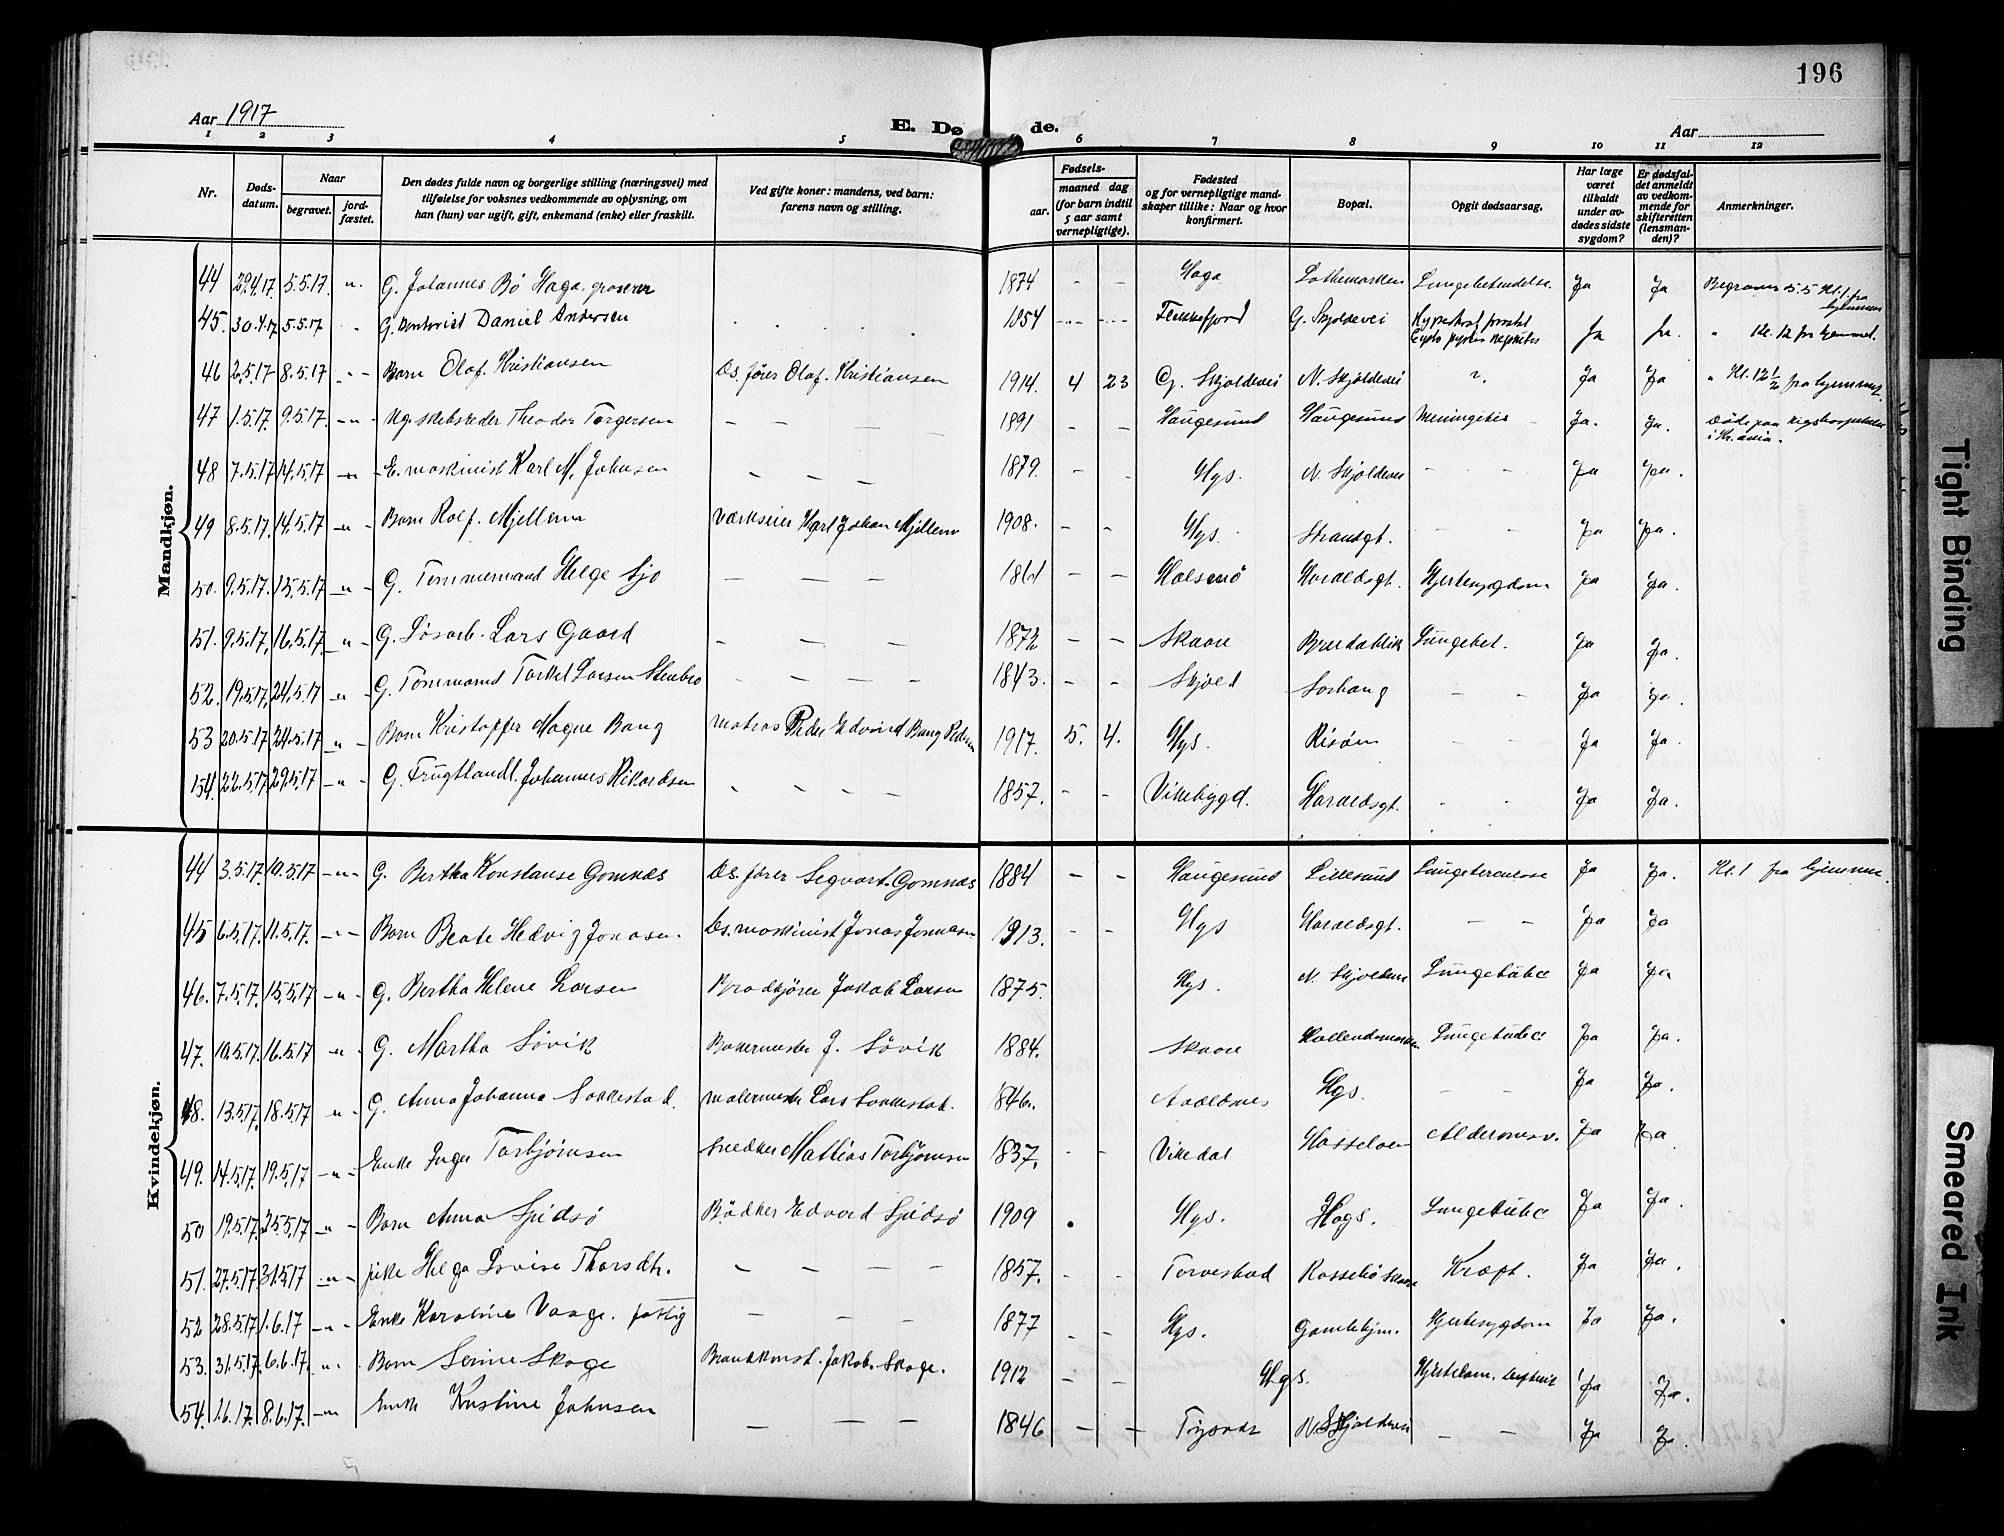 196
Aar 1917
E. Dø de.
Aar
1 2 3 4 5 6 7 8 9 10 11 12
Nr.
Døds-
datum.
Naar
begravet.
jord-
fæstet.
Den dødes fulde navn og borgerlige stilling (næringsvei) med
tilføielse for voksnes vedkommende av oplysning, om
han (hun) var ugift, gift, enkemand (enke) eller fraskilt.
Ved gifte koner: mandens, ved barn:
farens navn og stilling.
Fødsels-
aar.
maaned dag
(for barn indtil
5 aar samt
vernepligtige).
Fødested
og for vernepligtige mand-
skaper tillike: Naar og hvor
konfirmert.
Bopæl.
Opgit dødsaarsag.
Har læge
været
tilkaldt
under av-
dødes sidste
sygdom?
Er dødsfal-
det anmeldt
av vedkom-
mende for
skifteretten
(lensman-
den)?
Anmerkninger.
Mandkjøn.
44 29.4.17 5.5.17 -"- G. Johannes Bø Haga, grosserer 1874 - - Haga Lothemarken Lungebetendelse. Ja Ja Begraves 5.5 Kl. 1 fra hjemmet
45. 30.4.17 5.5.17 " G. Daniel Andersen 1854 Flekkefjord G. Skjoldevei Ja Ja. " Kl. 12 fra hjemmet.
46 2.5.17 8.5.17 -"- Barn Olaf Kristiansen Ds. fører Olaf Kristiansen 1914. 4 23 G. Skjoldevei N. Skjoldevei ?. Ja Ja " Kl. 12 1/2 fra hjemmet.
47 1.5.17. 9.5.17. -"- Ug. skibsreder Theodor Torgersen - - - - 1891 - - Haugesund Haugesund Meningitis - Ja. Ja. Døde paa Rigshospitalet
i Kr.ania.
48 7.5.17 14.5.17 -"- E. maskinist Karl M. Johnsen - - - 1879. - - Hgs. N. Skjoldevei - - Ja Ja.
49 8.5.17 14.5.17 -"- Barn Rolf Mjellem Værkseier Karl Johan Mjellem 1908. - - Hgs. Strandgt. - - Ja Ja.
50. 9.5.17. 15.5.17 -"- G. Tømmermand Helge Sjo - - - 1861 - - Halsnø Haraldsgt. Hjertesygdom Ja Ja.
51. 9.5.17. 16.5.17. -"- G. Løsarb. Lars Gaard - - - 1872 - - Skaare Breidablik Lungebet. Ja Ja.
52. 19.5.17. 24.5.17 -"- G. Tømmermd Torkel Larsen Stenbro - - - - 1843. - - Skjold Sørhaug - - Ja Ja.
53 20.5.17 24.5.17 -"- Barn Kristoffer Magne Bang Matros Peder Edvind Bang Pedersen 1917. 5. 4. Hgs. Risøen - - Ja Ja.
54. 22.5.17 29.5.17 -"- G. Frugthandl. Johannes Rikardsen - - - - 1857. - - Vikebygd. Haraldsgt. - - Ja Ja.
Kvindekjøn.
44 3.5.17. 10.5.17 -"- G. Bertha Konstanse Gomnæs Ds. fører Segvart Gomnæs 1884 - - Haugesund Lillesund Lungeterculose Ja Ja. Kl. 1 fra hjemmet.
45 6.5.17. 11.5.17. -"- Barn Beate Hedvig Jonasen. Ds. maskinist Jonas Jonasen 1913. - - Hgs Haraldsgt. - - Ja Ja
46. 7.5.17. 15.5.17 -"- G. Bertha Helene Larsen Brødkjører Jakob Larsen 1875. Hgs. N. Skjoldevei Lungetub. Ja Ja
47. 10.5.17. 16.5.17 -"- G. Martha Søvik Bakermester J. Søvik 1884. Skaare Lungetub. Ja Ja.
48. 13.5.17. 18.5.17 -"- G. Anna Johanna Sakkestad. Malermester Lars Sakkestad. 1846. Avaldsnes Hgs. - - Ja Ja.
49. 14.5.17. 19.5.17 -"- Enke Inger Torbjørnsen Snedker Mathias Torbjørnsen 1837. - - Vikedal Hasseløen Alderdomssv. Ja Ja
50 19.5.17. 25.5.17 -"- Barn Anna Spidsø Bødker Edvard Spidsø 1909 Hgs. Hags. Lungetub. Ja Ja.
51. 27.5.17 31.5.17 -"- pike Helga Lovise Thorsdtr. - - - - 1857. - - Torvestad Rossebø Skaare Kræft. Ja Ja.
52 28.5.17 1.6.17 -"- Enke Karoline Vaage. fattig - - - 1877 - - Hgs. Gamlehjm. Hjertesygdom Ja Ja.
53. 31.5.17. 6.6.17. "- Barn Serine Skoge Brandkonst. Jakob Skoge. 1912 - - Hgs. Hjertelam. difterit Ja Ja.
54. 1.6.17. 8.6.17. -"- Enke Kristine Johnsen - - - 1846 - Tysvær N. Skjoldevei - - Ja Ja.
Tight Binding
Smeared Ink